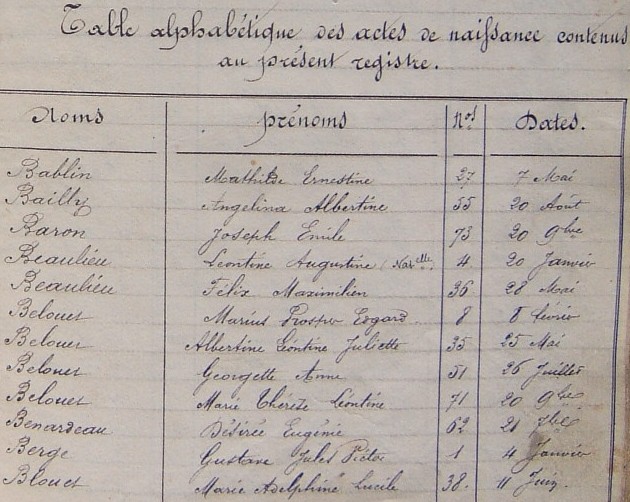 Table alphabétique des actes de naissance contenus
au présent registre.
Noms prénoms Nos Dates.
Bablin Mathilde Ernestine 27 7 Mai
Bailly Angelina Albertine 55 20 Août
Baron Joseph Emile 73 20 9bre
Beaulieu Léontine Augustine (Natelle) 4 20 Janvier
Beaulieu Félix Maximilien 36 28 Mai
Belouet Marius Prosper Edgard 8 8 février
Belouet Albertine Léontine Juliette 35 25 Mai
Belouet Georgette Anne 51 26 Juillet
Belouet Marie Thérèse Léontine 71 20 9bre
Benardeau Désirée Eugénie 62 21 7bre
Berge Gustave Jules Victor 1 4 Janvier
Blouet Marie Adelphine Lucile 38. 11 Juin.